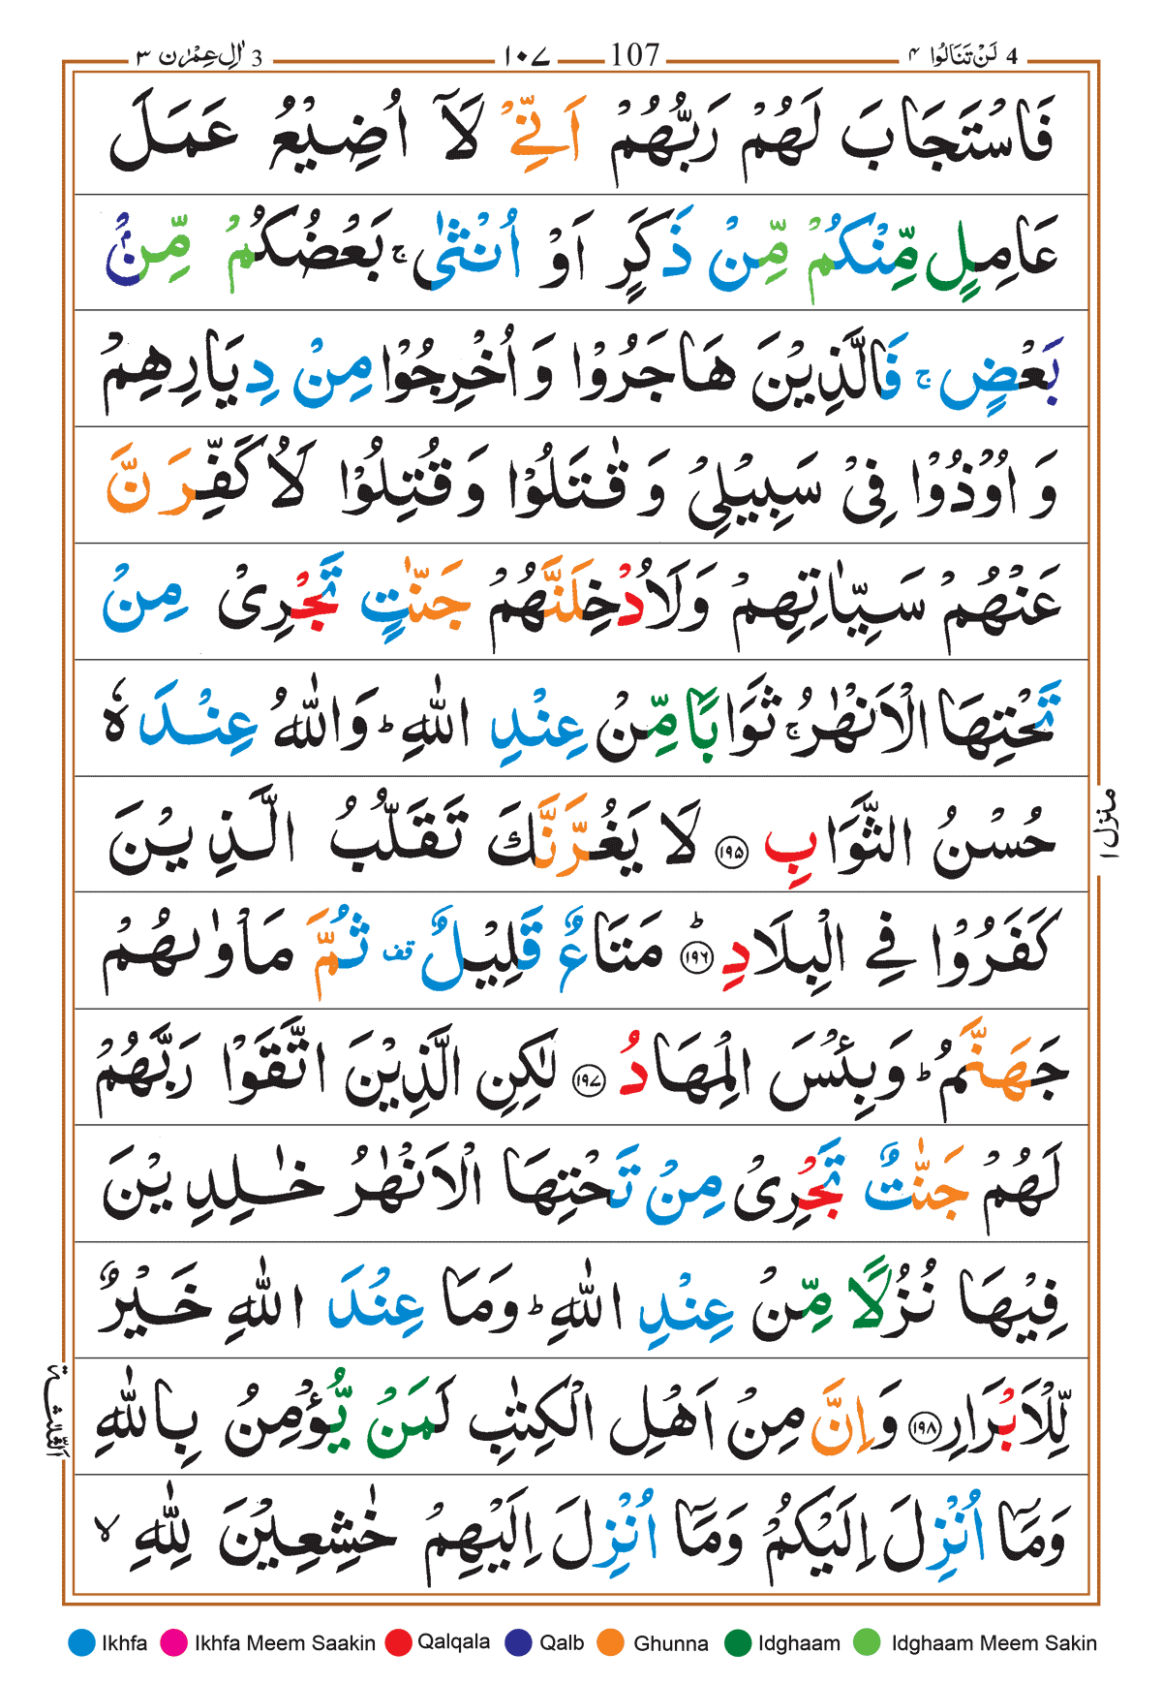 3 اٰلِ عِمْرٰن ٣
١٠٧
107
4 لَنْ تَنَالُوا ٤
فَاسْتَجَابَ لَهُمْ رَبُّهُمْ اَنِّيْ لَآ اُضِيْعُ عَمَلَ
عَامِلٍ مِّنْكُمْ مِّنْ ذَكَرٍ اَوْ اُنْثٰى ۚ بَعْضُكُمْ مِّنْۢ
بَعْضٍ ۚ فَالَّذِيْنَ هَاجَرُوْا وَاُخْرِجُوْا مِنْ دِيَارِهِمْ
وَاُوْذُوْا فِيْ سَبِيْلِيْ وَقٰتَلُوْا وَقُتِلُوْا لَاُكَفِّرَنَّ
عَنْهُمْ سَيِّاٰتِهِمْ وَلَاُدْخِلَنَّهُمْ جَنّٰتٍ تَجْرِيْ مِنْ
تَحْتِهَا الْاَنْهٰرُ ۚ ثَوَابًا مِّنْ عِنْدِ اللّٰهِ ؕ وَاللّٰهُ عِنْدَهٗ
حُسْنُ الثَّوَابِ ۝١٩٥ لَا يَغُرَّنَّكَ تَقَلُّبُ الَّذِيْنَ
كَفَرُوْا فِي الْبِلَادِ ؕ ۝١٩٦ مَتَاعٌ قَلِيْلٌ قف ثُمَّ مَاْوٰىهُمْ
جَهَنَّمُ ؕ وَبِئْسَ الْمِهَادُ ۝١٩٧ لٰكِنِ الَّذِيْنَ اتَّقَوْا رَبَّهُمْ
لَهُمْ جَنّٰتٌ تَجْرِيْ مِنْ تَحْتِهَا الْاَنْهٰرُ خٰلِدِيْنَ
فِيْهَا نُزُلًا مِّنْ عِنْدِ اللّٰهِ ؕ وَمَا عِنْدَ اللّٰهِ خَيْرٌ
لِّلْاَبْرَارِ ۝١٩٨ وَاِنَّ مِنْ اَهْلِ الْكِتٰبِ لَمَنْ يُّؤْمِنُ بِاللّٰهِ
وَمَآ اُنْزِلَ اِلَيْكُمْ وَمَآ اُنْزِلَ اِلَيْهِمْ خٰشِعِيْنَ لِلّٰهِ ۙ
منزل ١
الثلثة
Ikhfa
Ikhfa Meem Saakin
Qalqala
Qalb
Ghunna
Idghaam
Idghaam Meem Sakin